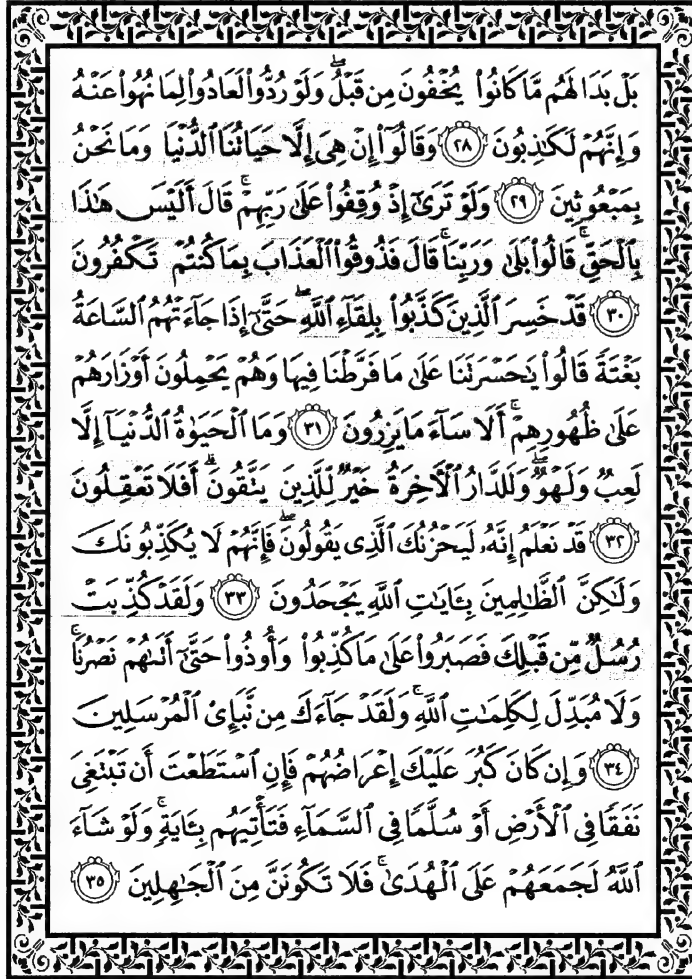 بَلْ بَدَا لَهُم مَّا كَانُوا۟ يُخْفُونَ مِن قَبْلُ ۖ وَلَوْ رُدُّوا۟ لَعَادُوا۟ لِمَا نُهُوا۟ عَنْهُ
وَإِنَّهُمْ لَكَـٰذِبُونَ ﴿٢٨﴾ وَقَالُوٓا۟ إِنْ هِىَ إِلَّا حَيَاتُنَا ٱلدُّنْيَا وَمَا نَحْنُ
بِمَبْعُوثِينَ ﴿٢٩﴾ وَلَوْ تَرَىٰٓ إِذْ وُقِفُوا۟ عَلَىٰ رَبِّهِمْ ۚ قَالَ أَلَيْسَ هَـٰذَا
بِٱلْحَقِّ ۚ قَالُوا۟ بَلَىٰ وَرَبِّنَا ۚ قَالَ فَذُوقُوا۟ ٱلْعَذَابَ بِمَا كُنتُمْ تَكْفُرُونَ
﴿٣٠﴾ قَدْ خَسِرَ ٱلَّذِينَ كَذَّبُوا۟ بِلِقَآءِ ٱللَّهِ ۖ حَتَّىٰٓ إِذَا جَآءَتْهُمُ ٱلسَّاعَةُ
بَغْتَةً قَالُوا۟ يَـٰحَسْرَتَنَا عَلَىٰ مَا فَرَّطْنَا فِيهَا وَهُمْ يَحْمِلُونَ أَوْزَارَهُمْ
عَلَىٰ ظُهُورِهِمْ ۚ أَلَا سَآءَ مَا يَزِرُونَ ﴿٣١﴾ وَمَا ٱلْحَيَوٰةُ ٱلدُّنْيَآ إِلَّا
لَعِبٌ وَلَهْوٌ ۖ وَلَلدَّارُ ٱلْـَٔاخِرَةُ خَيْرٌ لِّلَّذِينَ يَتَّقُونَ ۗ أَفَلَا تَعْقِلُونَ
﴿٣٢﴾ قَدْ نَعْلَمُ إِنَّهُۥ لَيَحْزُنُكَ ٱلَّذِى يَقُولُونَ ۖ فَإِنَّهُمْ لَا يُكَذِّبُونَكَ
وَلَـٰكِنَّ ٱلظَّـٰلِمِينَ بِـَٔايَـٰتِ ٱللَّهِ يَجْحَدُونَ ﴿٣٣﴾ وَلَقَدْ كُذِّبَتْ
رُسُلٌ مِّن قَبْلِكَ فَصَبَرُوا۟ عَلَىٰ مَا كُذِّبُوا۟ وَأُوذُوا۟ حَتَّىٰٓ أَتَىٰهُمْ نَصْرُنَا ۚ
وَلَا مُبَدِّلَ لِكَلِمَـٰتِ ٱللَّهِ ۚ وَلَقَدْ جَآءَكَ مِن نَّبَإِى۟ ٱلْمُرْسَلِينَ
﴿٣٤﴾ وَإِن كَانَ كَبُرَ عَلَيْكَ إِعْرَاضُهُمْ فَإِنِ ٱسْتَطَعْتَ أَن تَبْتَغِىَ
نَفَقًا فِى ٱلْأَرْضِ أَوْ سُلَّمًا فِى ٱلسَّمَآءِ فَتَأْتِيَهُم بِـَٔايَةٍ ۚ وَلَوْ شَآءَ
ٱللَّهُ لَجَمَعَهُمْ عَلَى ٱلْهُدَىٰ ۚ فَلَا تَكُونَنَّ مِنَ ٱلْجَـٰهِلِينَ ﴿٣٥﴾